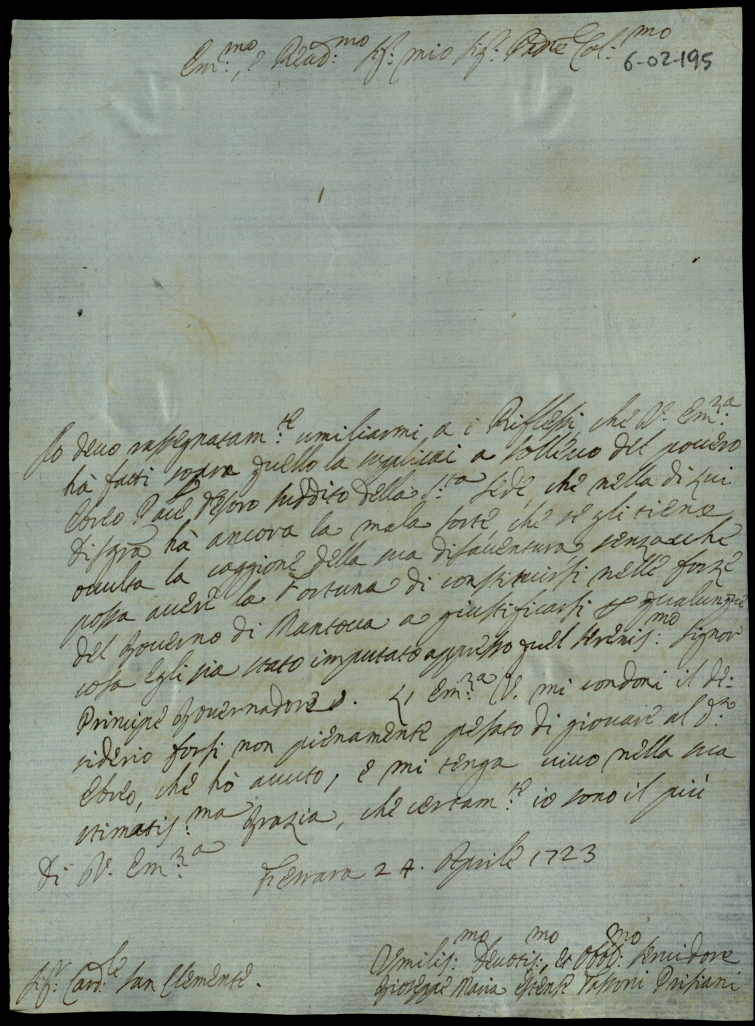 Em.mo, e Reud.mo Sig.r mio Sig.r Padrē Col.mo
6-02-195
Io deuo rassegnatam.te umiliarmi a i Riflessi, che V. Em.za
hà fatti sopra quello la supplicai a solleuo del pouero
Ebreo Pace Pesaro suddito della S.ta Sede, che nella di Lui
disgra hà ancora la mala sorte, che se gli tiene
occulta la caggione della sua disauentura senza che
possa auere la Fortuna di constituirsi nelle forze
del Gouerno di Mantoua a giustificarsi qualunque
cosa Egli sia stato imputato appresso quel Serenis.mo Signor
Principe Gouernadore. L' Em.za V. mi condoni il de:
siderio forsi non pienamente pesato di giouare al d.to
Ebreo, che hò auuto, e mi tenga uiuo nella sua
stimatis.ma Grazia, che certam.te io sono il più
Di V. Em.za Ferrara 24. Aprile 1723
Sig.r Card.le San Clemente.
Vmilis.mo Deuotis.mo, et Obb.mo Seruidore
Gioseppe Maria Estense Tassoni Prisiani